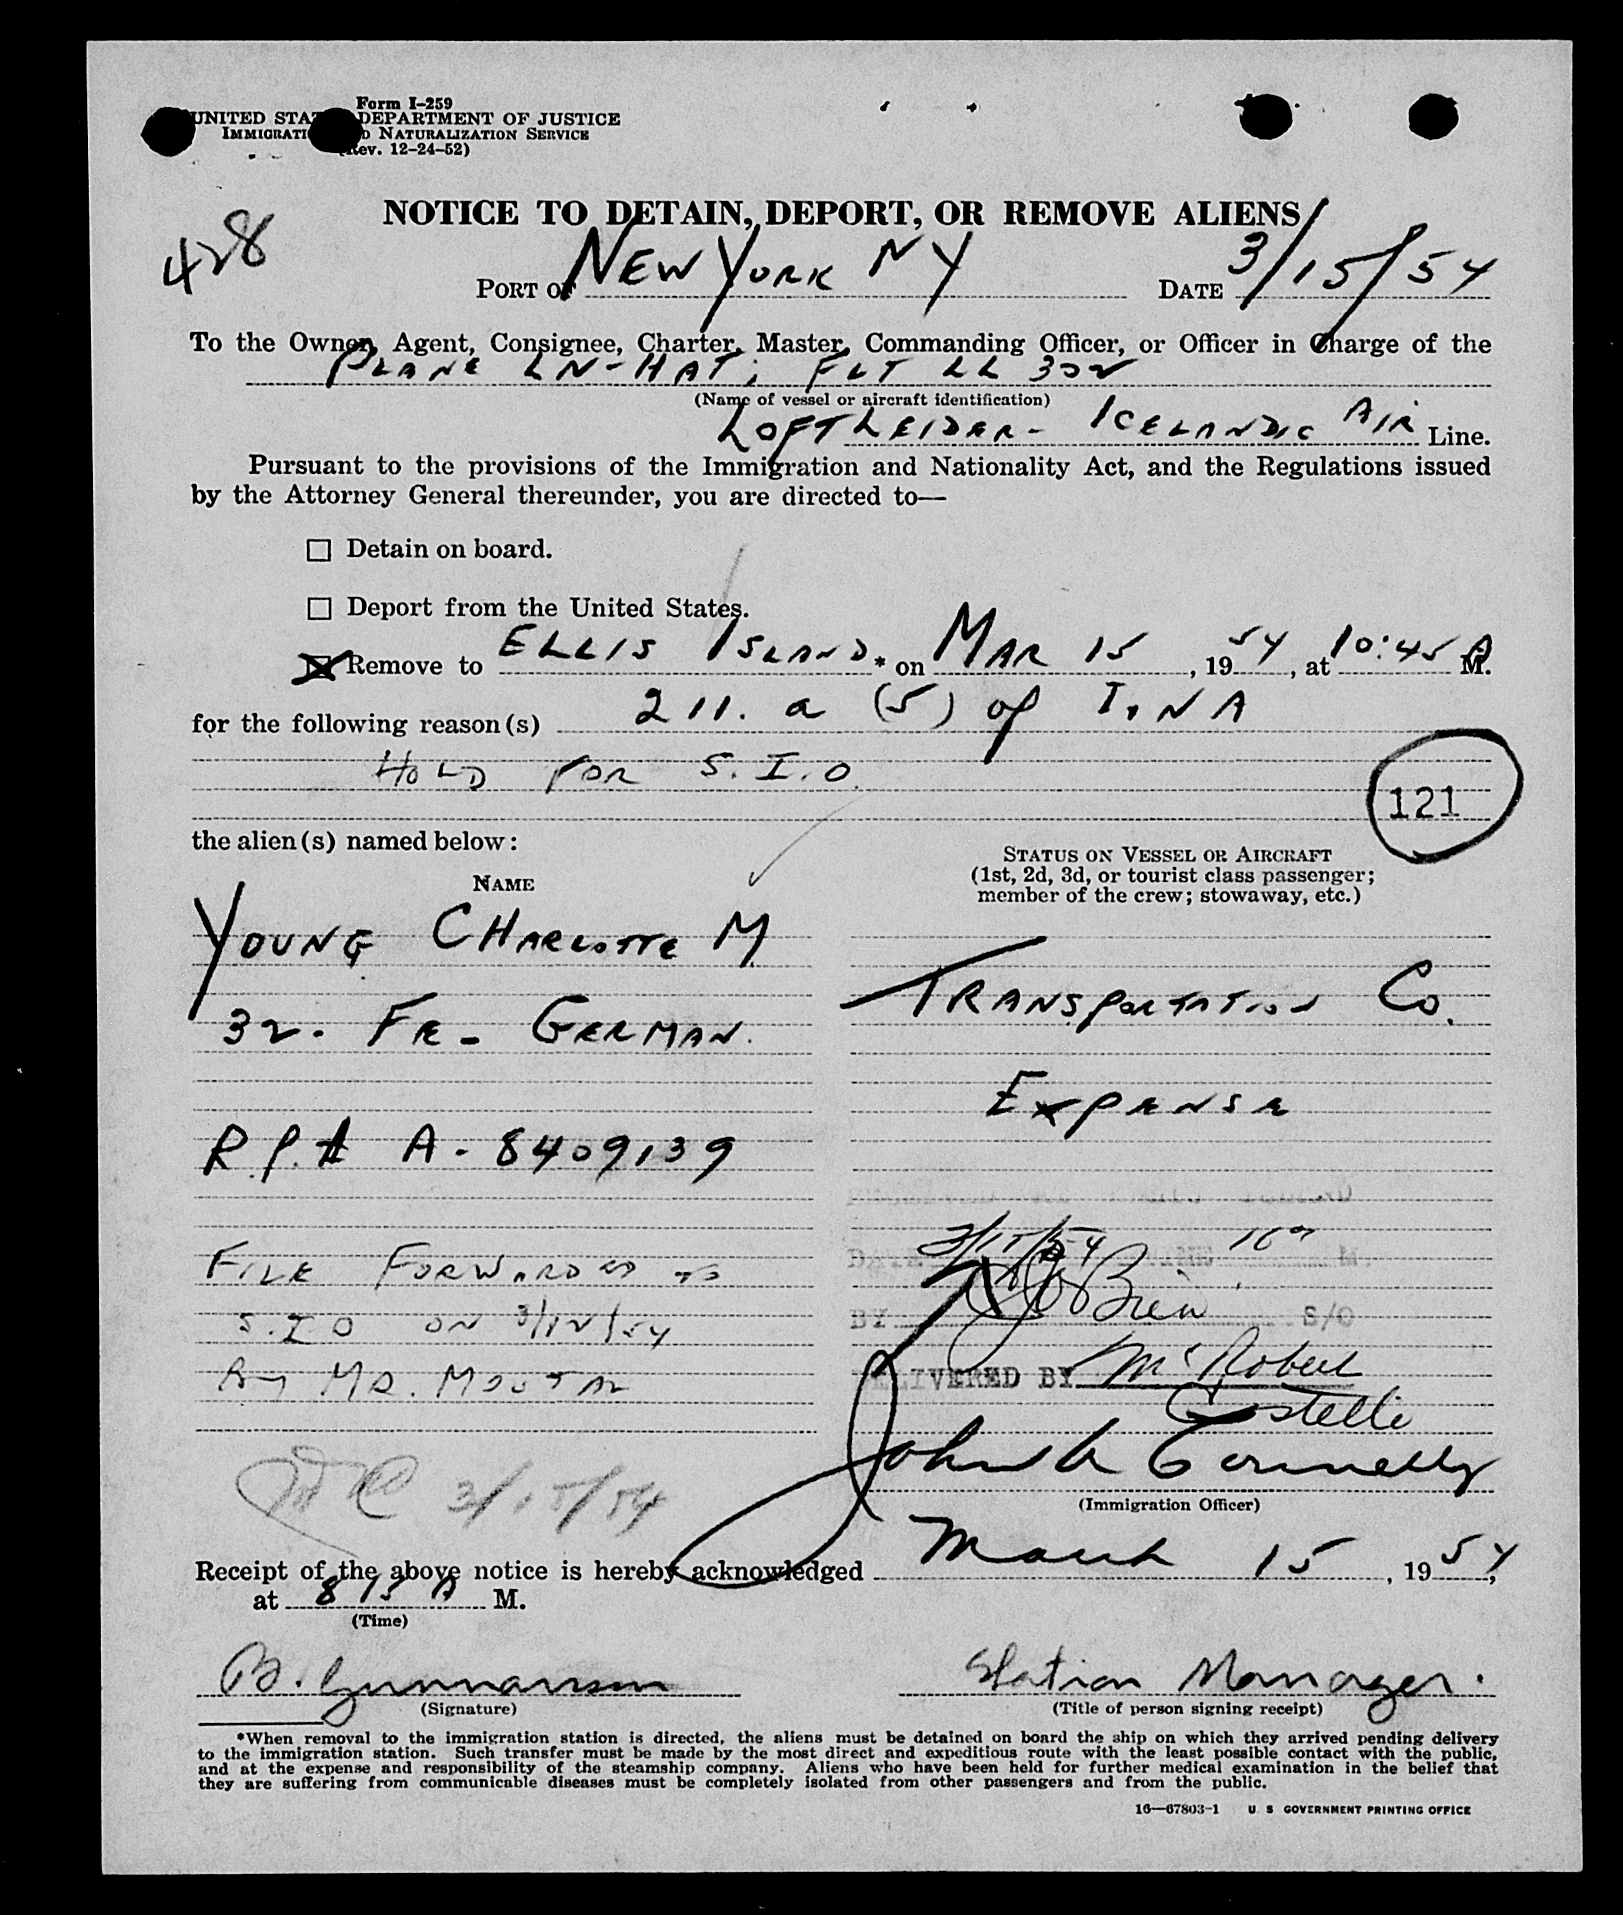 Form I-259
UNITED STA DEPARTMENT OF JUSTICE
IMMIGRATI D NATURALIZATION SERVICE
(Rev. 12-24-52)
428
NOTICE TO DETAIN, DEPORT, OR REMOVE ALIENS
PORT OF NEW YORK NY DATE 3/15/54
To the Owner, Agent, Consignee, Charter, Master, Commanding Officer, or Officer in Charge of the
PLANE LN-HAT; FLT LL 302
(Name of vessel or aircraft identification)
LOFTLEIDER - ICELANDIC AIR Line.
Pursuant to the provisions of the Immigration and Nationality Act, and the Regulations issued
by the Attorney General thereunder, you are directed to—
☐ Detain on board.
☐ Deport from the United States.
☒ Remove to ELLIS ISLAND * on MAR 15, 1954, at 10:45 A M.
for the following reason(s) 211. a (5) of I. N A
HOLD FOR S.I.O.
121
the alien(s) named below:
STATUS ON VESSEL OR AIRCRAFT
(1st, 2d, 3d, or tourist class passenger;
member of the crew; stowaway, etc.)
NAME
YOUNG CHARLOTTE M.
TRANSPORTATION Co.
32. FE - GERMAN.
EXPENSE
R.P.# A-8409139
3/15/54
FILE FORWARDED TO
O'Brien S/O
S.I O ON 3/12/54
DELIVERED BY McRobert
By MR.
Costello
John A Connelly
3/15/54
(Immigration Officer)
Receipt of the above notice is hereby acknowledged March 15, 1954,
at 8 15 A M.
(Time)
B. Gunnarsson Station Manager.
(Signature) (Title of person signing receipt)
*When removal to the immigration station is directed, the aliens must be detained on board the ship on which they arrived pending delivery
to the immigration station. Such transfer must be made by the most direct and expeditious route with the least possible contact with the public,
and at the expense and responsibility of the steamship company. Aliens who have been held for further medical examination in the belief that
they are suffering from communicable diseases must be completely isolated from other passengers and from the public.
16—67803-1 U S GOVERNMENT PRINTING OFFICE